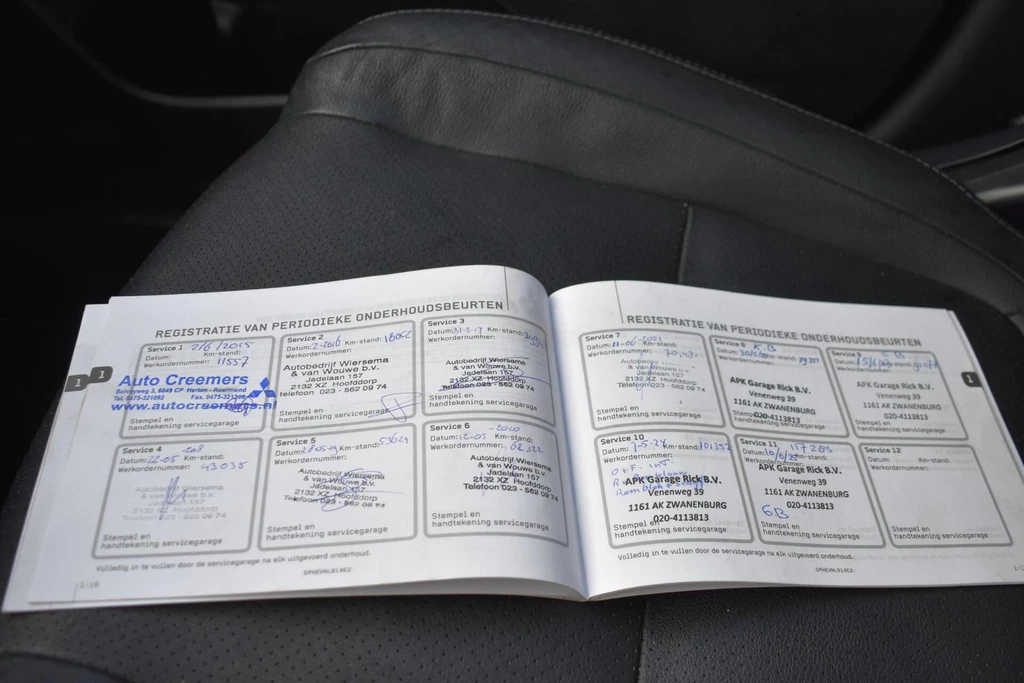 REGISTRATIE VAN PERIODIEKE ONDERHOUDSBEURTEN
Service 1 2/6/2015
Datum: Km-stand:
Werkordernummer: 11557
Auto Creemers
Solvayweg 3, 6049 CP Herten - Roermond
Tel. 0475-321092 Fax. 0475-321200
www.autocreemers.nl
Stempel en
handtekening servicegarage
Service 2
Datum: 2-2016 Km-stand:
Werkordernummer:
Autobedrijf Wiersema
& van Wouwe b.v.
Jadelaan 157
2132 XZ Hoofddorp
telefoon 023 - 562 09 74
Stempel en
handtekening servicegarage
Service 3
Datum: Km-stand:
Werkordernummer:
Autobedrijf Wiersema
& van Wouwe b.v.
Jadelaan 157
2132 XZ Hoofddorp
Telefoon 023 - 562 09 74
Stempel en
handtekening servicegarage
Service 4
Datum: 22-05 Km-stand:
Werkordernummer: 43035
Autobedrijf Wiersema
& van Wouwe b.v.
Jadelaan 157
2132 XZ Hoofddorp
Telefoon 023 - 562 09 74
Stempel en
handtekening servicegarage
Service 5
Datum: Km-stand: 53624
Werkordernummer:
Autobedrijf Wiersema
& van Wouwe b.v.
Jadelaan 157
2132 XZ Hoofddorp
Telefoon 023 - 562 09 74
Stempel en
handtekening servicegarage
Service 6 -2020
Datum: 12-05 Km-stand:
Werkordernummer: 62.122
Autobedrijf Wiersema
& van Wouwe b.v.
Jadelaan 157
2132 XZ Hoofddorp
Telefoon 023 - 562 09 74
Stempel en
handtekening servicegarage
Volledig in te vullen door de servicegarage na elk uitgevoerd onderhoud.
1-16
SPHEVNL914E2
REGISTRATIE VAN PERIODIEKE ONDERHOUDSBEURTEN
Service 7
Datum: 11-06-2021 Km-stand:
Werkordernummer:
Autobedrijf Wiersema
& van Wouwe b.v.
Jadelaan 157
2132 XZ Hoofddorp
Telefoon 023 - 562 09 74
Stempel en
handtekening servicegarage
Service 8
Datum: Km-stand:
Werkordernummer:
APK Garage Rick B.V.
Venenweg 39
1161 AK ZWANENBURG
020-4113813
Stempel en
handtekening servicegarage
APK Garage Rick B.V.
Venenweg 39
1161 AK ZWANENBURG
020-4113813
Stempel en
handtekening servicegarage
Service 10
Datum: 7-5-24 Km-stand: 101352
Werkordernummer:
O + F. int
APK Garage Rick B.V.
Venenweg 39
1161 AK ZWANENBURG
020-4113813
Stempel en
handtekening servicegarage
Service 11 117285
Datum: Km-stand:
Werkordernummer:
APK Garage Rick B.V.
Venenweg 39
1161 AK ZWANENBURG
020-4113813
6B
Stempel en
handtekening servicegarage
Service 12
Datum: Km-stand:
Werkordernummer:
Stempel en
handtekening servicegarage
Volledig in te vullen door de servicegarage na elk uitgevoerd onderhoud.
SPHEVNL914E2